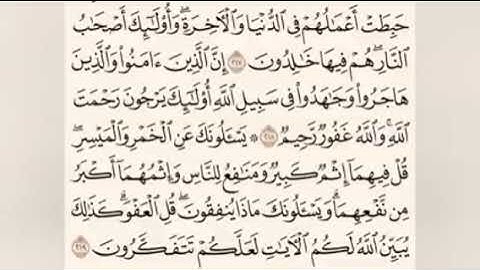 حَبِطَتْ أَعْمَٰلُهُمْ فِى ٱلدُّنْيَا وَٱلْـَٔاخِرَةِ ۖ وَأُو۟لَٰٓئِكَ أَصْحَٰبُ
ٱلنَّارِ ۖ هُمْ فِيهَا خَٰلِدُونَ ٢١٧ إِنَّ ٱلَّذِينَ ءَامَنُوا۟ وَٱلَّذِينَ
هَاجَرُوا۟ وَجَٰهَدُوا۟ فِى سَبِيلِ ٱللَّهِ أُو۟لَٰٓئِكَ يَرْجُونَ رَحْمَتَ
ٱللَّهِ ۚ وَٱللَّهُ غَفُورٌ رَّحِيمٌ ٢١٨ ۞ يَسْـَٔلُونَكَ عَنِ ٱلْخَمْرِ وَٱلْمَيْسِرِ ۖ
قُلْ فِيهِمَآ إِثْمٌ كَبِيرٌ وَمَنَٰفِعُ لِلنَّاسِ وَإِثْمُهُمَآ أَكْبَرُ
مِن نَّفْعِهِمَا ۗ وَيَسْـَٔلُونَكَ مَاذَا يُنفِقُونَ ۖ قُلِ ٱلْعَفْوَ ۗ كَذَٰلِكَ
يُبَيِّنُ ٱللَّهُ لَكُمُ ٱلْـَٔايَٰتِ لَعَلَّكُمْ تَتَفَكَّرُونَ ٢١٩